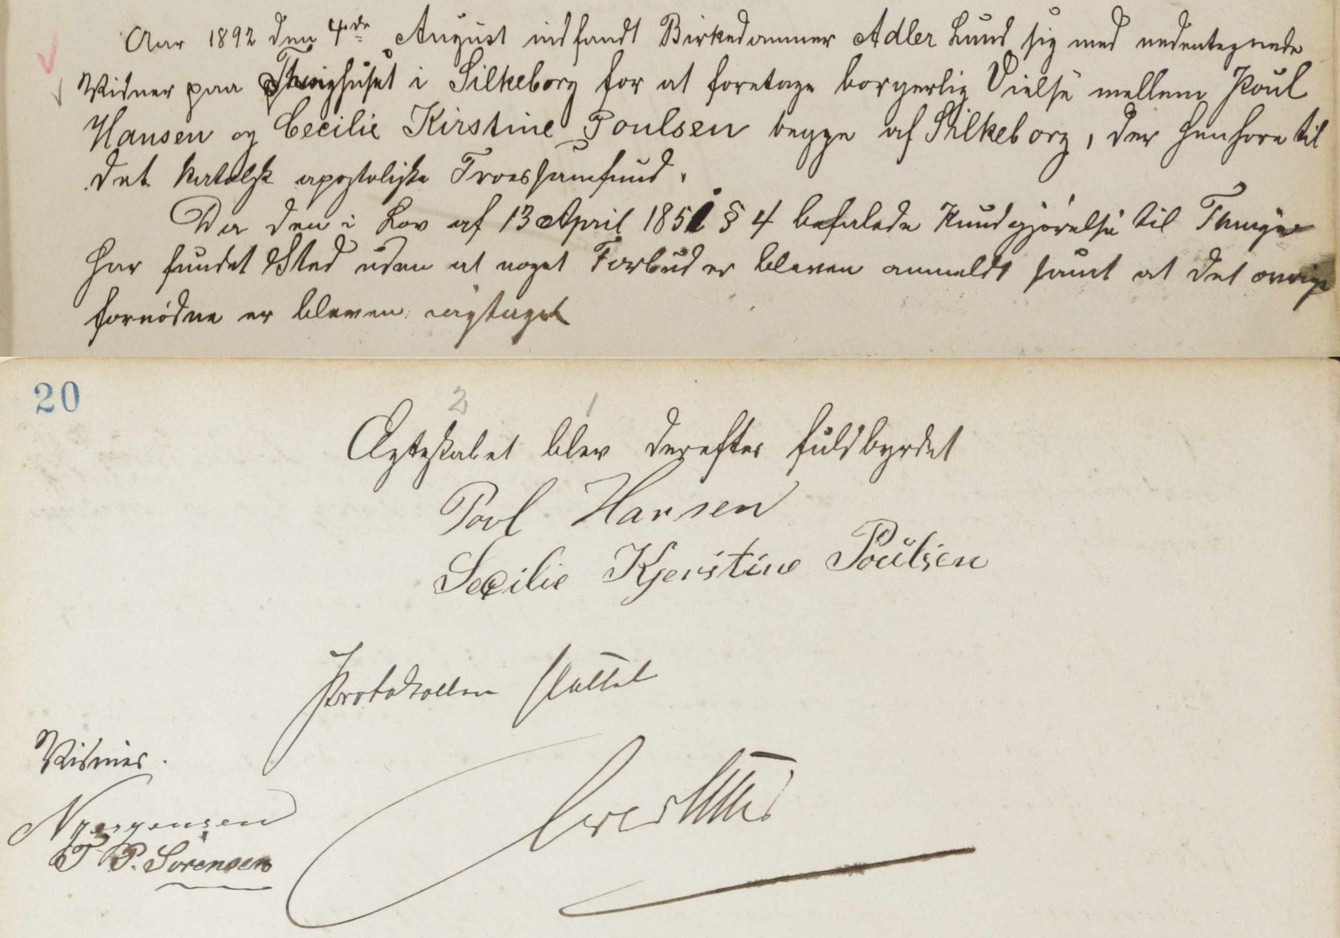 Aar 1892 den 4de August indfandt Birkedommer Adler Lund sig med nedentegnede
Vidner paa Thinghuset i Silkeborg for at foretage borgerlig Vielse mellem Poul
Hansen og Cecilie Kirstine Poulsen begge af Silkeborg, der henhøre til
det katolsk apostoliske Troessamfund.
Da den i Lov af 13 April 1851 § 4 befalede Kundgjørelse til Thinge
har fundet Sted uden at noget Forbud er bleven anmeldt samt at det øvrige
fornødne er bleven iagttaget
20
2 1
Ægteskabet blev derefter fuldbyrdet
Povl Hansen
Secilie Kjerstine Poulsen
Protokollen sluttet
Vidner.
P. Sørensen